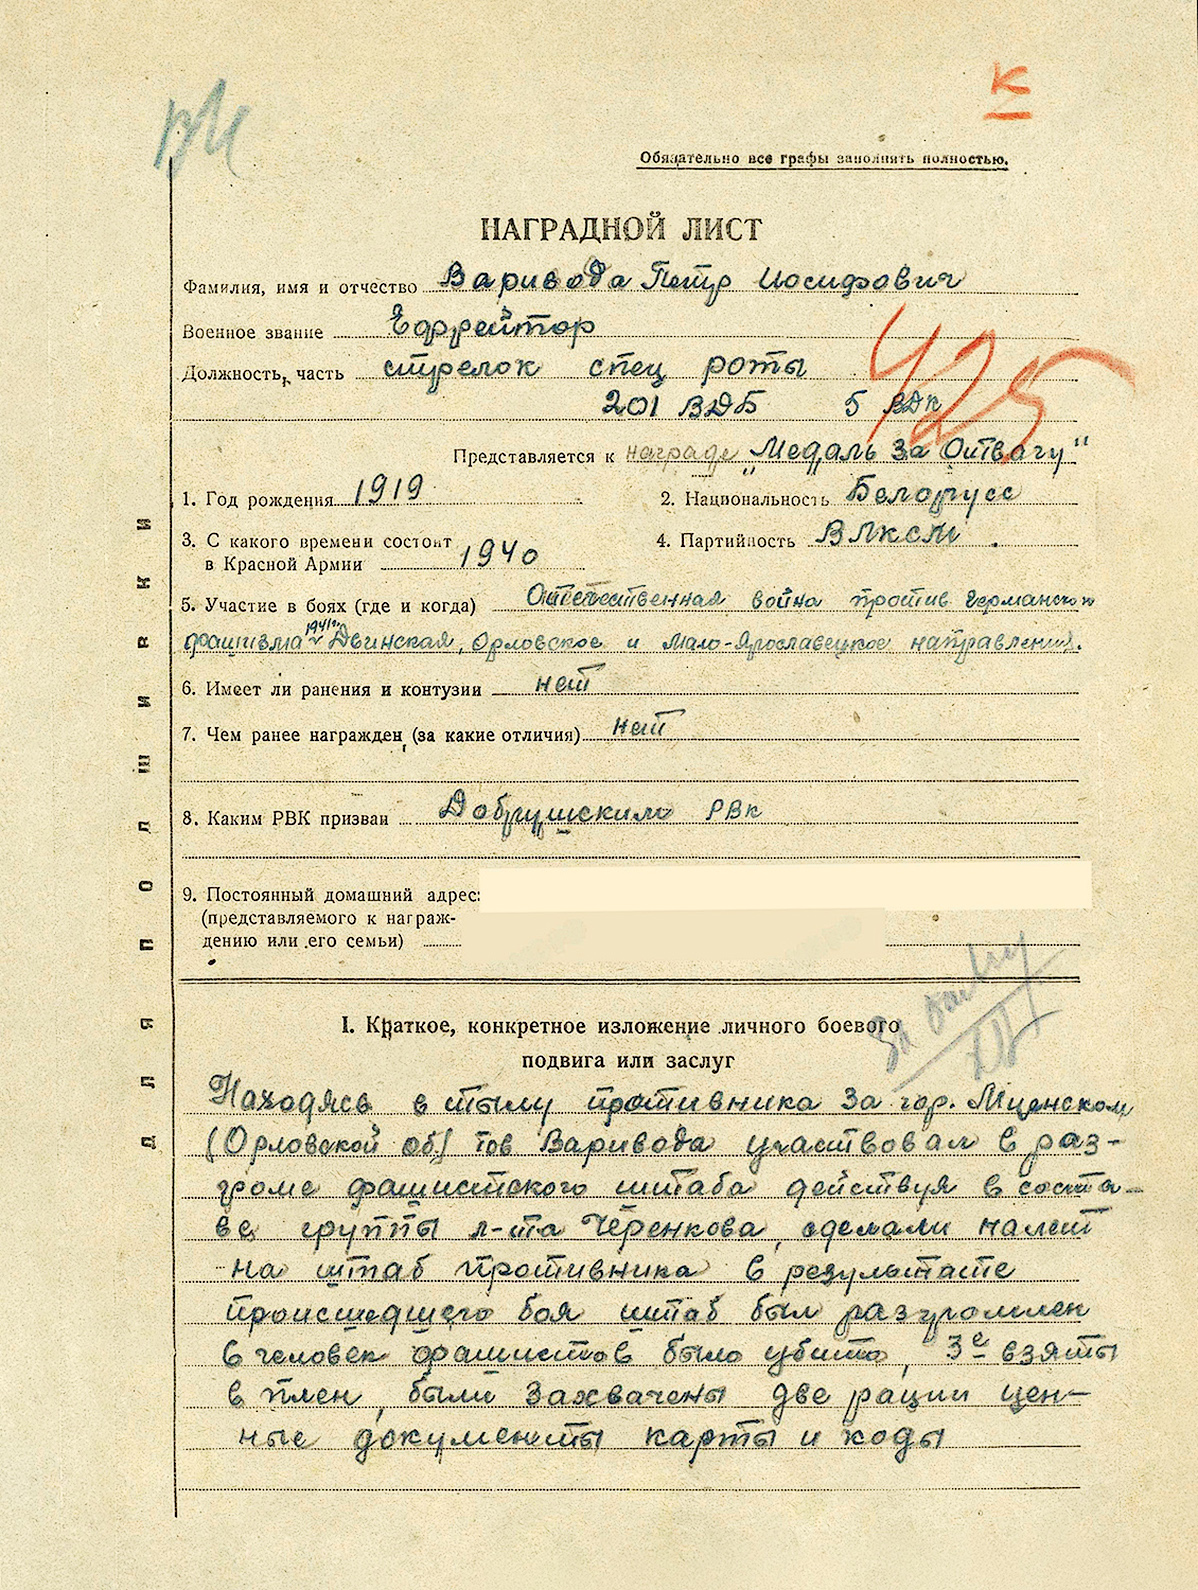 ВИ
К
Обязательно все графы заполнять полностью.
НАГРАДНОЙ ЛИСТ
Фамилия, имя и отчество Варивода Петр Иосифович
Военное звание Ефрейтор
Должность, часть стрелок спец роты
201 ВДБ 5 ВДК
425
Представляется к награде „Медаль За Отвагу"
1. Год рождения 1919
2. Национальность Белорусс
3. С какого времени состоит
в Красной Армии 1940
4. Партийность ВЛКСМ
5. Участие в боях (где и когда) Отечественная война против германского
фашизма 1941г. Двинская, Орловское и Мало-Ярославецкое направления.
6. Имеет ли ранения и контузии нет
7. Чем ранее награжден (за какие отличия) нет
8. Каким РВК призван Добрушским РВК
9. Постоянный домашний адрес:
(представляемого к награж-
дению или его семьи)
За
I. Краткое, конкретное изложение личного боевого
подвига или заслуг
Находясь в тылу противника за гор. Мценском
(Орловской об.) тов Варивода участвовал в раз-
громе фашистского штаба действуя в соста-
ве группы л-та Черенкова, сделали налет
на штаб противника в результате
происшедшего боя штаб был разгромлен
6 человек фашистов было убито, 3е взяты
в плен, были захвачены две рации цен-
ные документы карты и коды
ДЛЯ ПОДШИВКИ